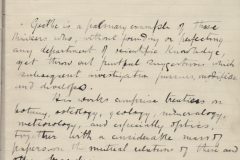 Goethe is a primary example of those
thinkers who, without founding or perfecting
any department of scientific knowledge,
yet throw out fruitful suggestions which
subsequent investigation pursues, modifies
and develops.
His works comprise treatises on
botany, osteology, geology, mineralogy,
meteorology, and especially optics,
together with a considerable mass of
papers on the mutual relation of these and